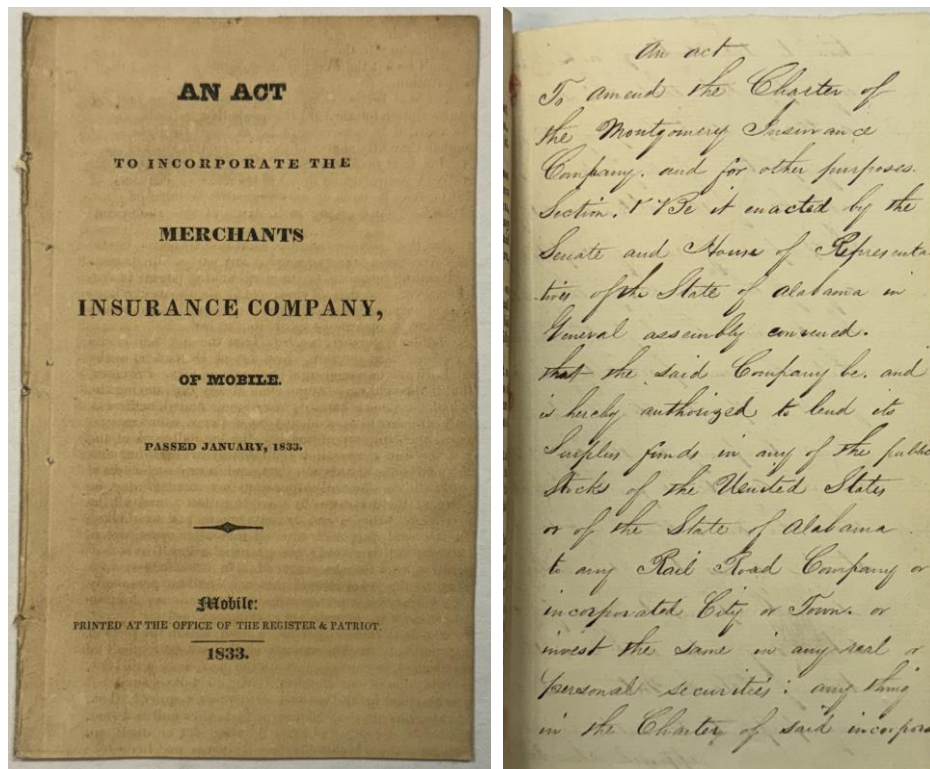 AN ACT
TO INCORPORATE THE
MERCHANTS
INSURANCE COMPANY,
OF MOBILE.
PASSED JANUARY, 1833.
Mobile:
PRINTED AT THE OFFICE OF THE REGISTER & PATRIOT.
1833.
An act
To amend the Charter of
the Montgomery Insurance
Company. and for other purposes.
Section. 1 Be it enacted by the
Senate and House of Representa
tives of the State of Alabama in
General assembly convened.
that the said Company be. and
is hereby authorized to lend its
Surplus funds in any of the public
Stocks of the United States
or of the State of Alabama
to any Rail Road Company or
incorporated City or Town. or
invest the same in any real or
personal securities: any thing
in the Charter of said incorpora